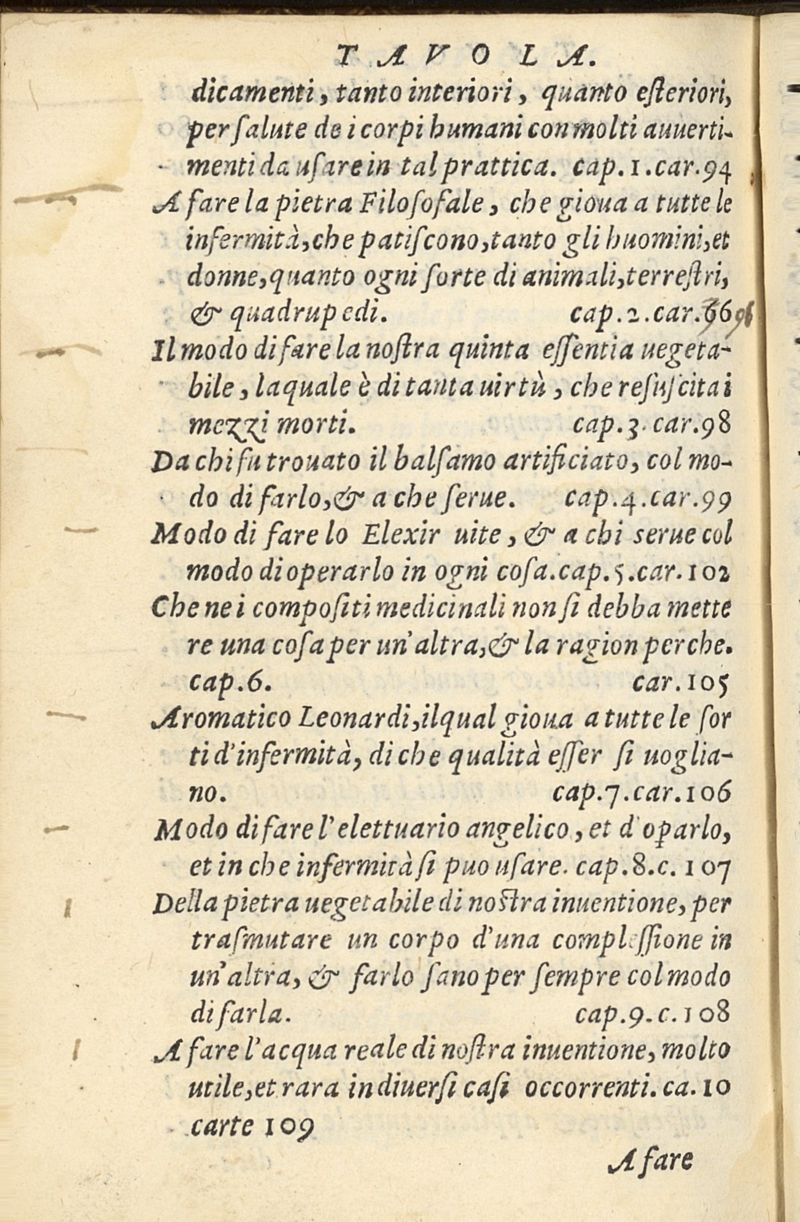 TAVOLA.
dicamenti, tanto interiori, quanto eſteriori,
per ſalute de i corpi humani con molti auuerti-
menti da uſare in tal prattica. cap.1.car.94
A fare la pietra Filoſofale, che gioua a tutte le
infermità, che patiſcono, tanto gli huomini, et
donne, quanto ogni ſorte di animali, terreſtri,
& quadrupedi. cap.2.car.66 96
Il modo di fare la noſtra quinta eſſentia uegeta-
bile, laquale è di tanta uirtù, che reſuſcita i
mezzi morti. cap.3.car.98
Da chi fu trouato il balſamo artificiato, col mo-
do di farlo, & a che ſerue. cap.4.car.99
Modo di fare lo Elexir uite, & a chi serue col
modo di operarlo in ogni coſa. cap.5.car.102
Che ne i compoſiti medicinali non ſi debba mette
re una coſa per un'altra, & la ragion perche.
cap.6. car.105
Aromatico Leonardi, ilqual gioua a tutte le ſor
ti d'infermità, di che qualità eſſer ſi uoglia-
no. cap.7.car.106
Modo di fare l'elettuario angelico, et d'oꝑarlo,
et in che infermità ſi puo uſare. cap.8.c.107
Della pietra uegetabile di noſtra inuentione, per
traſmutare un corpo d'una compleſſione in
un'altra, & farlo ſano per ſempre col modo
di farla. cap.9.c.108
A fare l'acqua reale di noſtra inuentione, molto
utile, et rara in diuerſi caſi occorrenti. ca.10
carte 109
A fare